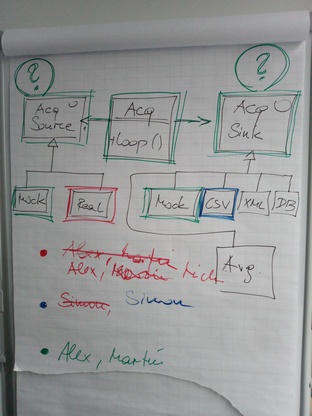 ?
?
Acq Source
Acq
+loop()
Acq Sink
Mock
Real
Mock
CSV
XML
DB
Avg.
Alex, Martin
Alex, Martin Mich
Simon,
Simon
Alex, Martin